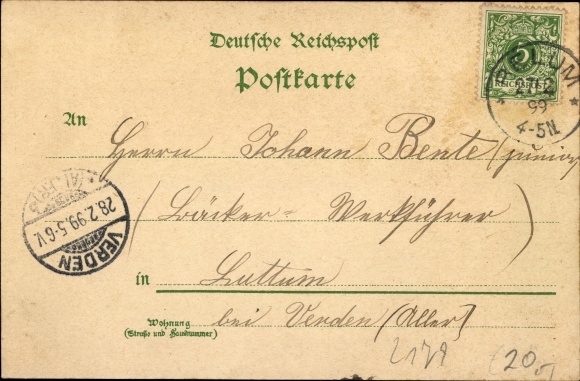 Deutsche Reichspost
Postkarte
REICHSPOST
5
27/2
99
4-5N.
An
Herrn Johann Bente (junior
(Bäcker-Werkführer)
in Luttum
bei Verden (Aller)
Wohnung
(Straße und Hausnummer)
VERDEN
28.2.99.5-6V.
2178
(20.-